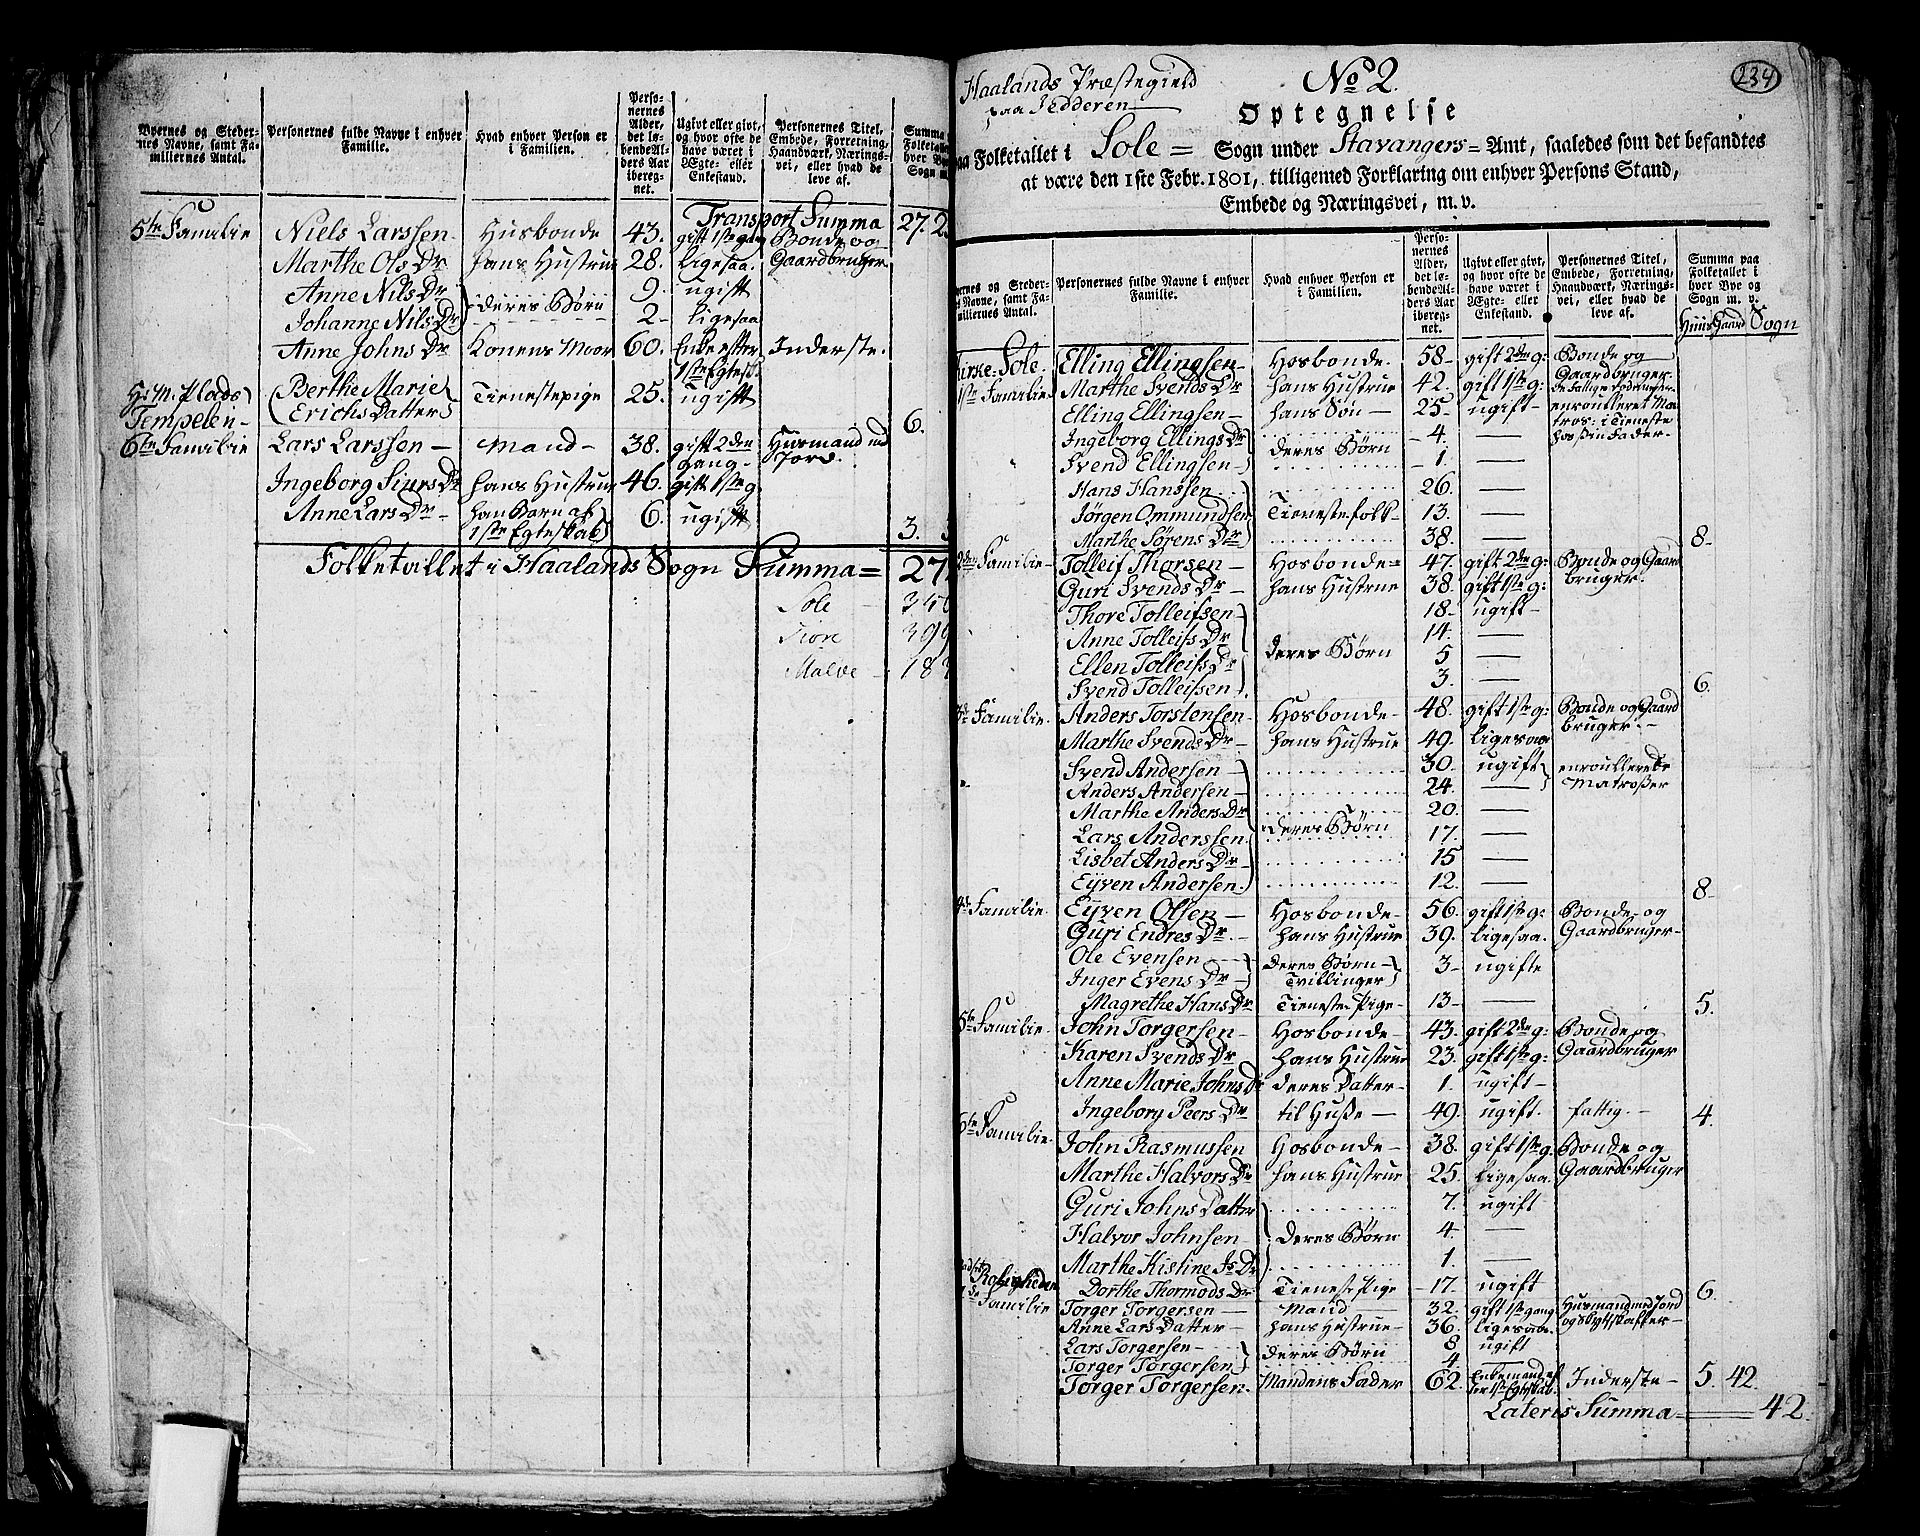 Byernes og Steder-
nes Navne, samt Fa-
miliernes Antal.
Personernes fulde Navne i enhver
Familie.
Hvad enhver Person er
i Familien.
Perso-
nernes
Alder,
det lø-
bende Al-
ders Aar
ibereg-
net.
Ugivt eller givt,
og hvor ofte de
have været i
Ægte- eller
Enkestand.
Personernes Titel,
Embede, Forretning,
Haandværk, Nærings-
vei, eller hvad de
leve af.
Summa
Folketallet
hver By
Sogn m.
Transport Summa 27. 2
5te Familie Niels Larssen Husbonde 43. gift 1ste gang Bonde og
Marthe Ols Dr hans Hustrue 28. ligesaa. Gaardbruger
Anne Nils Dr deres Børn 9. ugift
Johanne Nils Dr 2- ligesaa
Anne Johns Dr Konens Moor 60. Enke efter Inderste.
1ste Egtesk.
H: M. Plads Berthe Marie Tienestepige 25. ugift
Tempelen- Erichs Datter 6.
6te Familie Lars Larssen — Mand- 38. gift 2den Husmand
gang- Jord.
Ingeborg Siurs Dr hans Hustrue 46. gift 1ste g.
Anne Lars Dr- han Barn af 6. ugift
1ste Egteskab 3.
Folketallet i Haalands Sogn Summa= 27
Sole
Malve
234
Haalands Præstegield
paa Jedderen
No 2.
Optegnelse
Folketallet i Sole = Sogn under Stavangers = Amt, saaledes som det befandtes
at være den 1ste Febr. 1801, tilligemed Forklaring om enhver Persons Stand,
Embede og Næringsvei, m. v.
og Steder-
Navne, samt Fa-
Antal.
Personernes fulde Navne i enhver
Familie.
Hvad enhver Person er
i Familien.
Perso-
nernes
Alder,
det lø-
bende Al-
ders Aar
ibereg-
net.
Ugivt eller givt,
og hvor ofte de
have været i
Ægte- eller
Enkestand.
Personernes Titel,
Embede, Forretning,
Haandværk, Nærings-
vei, eller hvad de
leve af.
Summa paa
Folketallet i
hver Bye og
Sogn m. v.
Huus Gaard Sogn
Sole. Elling Ellingsen- Hosbonde- 58- gift 2de g: Bonde og
Gaardbruger-
1ste Familie Marthe Svends Dr hans Hustrue 42. gift 1ste g:
Elling Ellingsen- hans Søn — 25- ugift- enroulleret Ma
tros: i Tieneste
Ingeborg Ellings Dr deres Børn - 4. — hos sin Fader-
Svend Ellingsen - 1. —
Hans Hanssen 26. —
Jørgen Ommundsen Tienestefolk- 13. —
Marthe Sørens Dr 38. — 8-
2den Familie- Tolleif Thorsen- Hosbonde= 47. gift 2de g: Bonde og Gaard
Guri Svends Dr - hans Hustrue 38. gift 1ste g: bruger.
Thore Tolleifsen- 18- ugift-
Anne Tolleifs Dr 14. —
deres Børn
Ellen Tolleifs Dr 5 —
Svend Tolleifsen 3. — 6.
Familie. Anders Torstensen- Hosbonde- 48. gift 1ste g: Bonde og Gaard
bruger.-
Marthe Svends Dr- hans Hustrue 49. ligesaa
Svend Andersen- 30- ugift enroullerede
Anders Andersen- 24. — Matrosser
Marthe Anders Dr 20. —
Lars Anderssen. deres Børn 17. —
Lisbet Anders Dr- 15 —
Eyven Andersen. 12. — 8-
Familie. Eyven Olsen — Hosbonde- 56. gift 1ste g: Bonde- og
Guri Endres Dr.- hans Hustrue 39. ligesaa. Gaardbruger-
Ole Evensen deres Børn- 3- ugifte
Inger Evens Dr- Tvillinger
Magrethe Hans Dr Tieneste Pige- 13- — 5.
5te Familie. John Torgersen- Hosbonde- 43. gift 2de g: Bonde og
Karen Svends Dr hans Hustrue 23. gift 1ste g: Gaardbruger
Anne Marie Johns Dr deres Datter- 1. ugift-
Ingeborg Peers Dr til Huse — 49. ugift. fattig.- 4.
6te Familie. John Rasmussen Hosbonde- 38. gift 1ste g. Bonde og
Marthe Halvors Dr hans Hustrue 25. ligesaa. Gaardbruger
Guri Johns Datter 7. ugift
Halvor Johnsen- deres Børn 4. —
Marthe Kistine Js Dr 1. —
Roligheden Dorthe Thormods Dr Tieneste Pige -17. ugift 6.
Familie Torger Torgersen- Mand — 32. gift 1ste gang Husmand med Jord
Anne Lars Datter- hans Hustrue- 36. ligesaa.
Lars Torgersen- deres Børn 8 ugift
Torger Torgersen 4.
Torger Torgersen. Mandens Fader 62. Enkemand ef Inderste- 5. 42.
ter 1ste Egteskab.
Lateris Summa= 42.